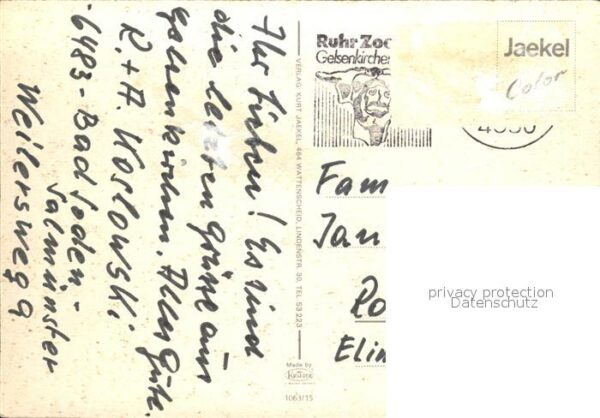 Ihr Lieben! Es sind
die letzten Grüße aus
Gelsenkirchen. Alles Gute.
R. + A. Koslowski
6483 - Bad Soden -
Salmünster
Weilersweg 9
VERLAG KURT JAEKEL, 464 WATTENSCHEID, LINDENSTR. 30, TEL. 53 223
Made by
Krüger
1063/15
Ruhr Zoo
Gelsenkirchen
Jaekel
Color
4650
Fam
Jan
Ro
Elin
privacy protection
Datenschutz